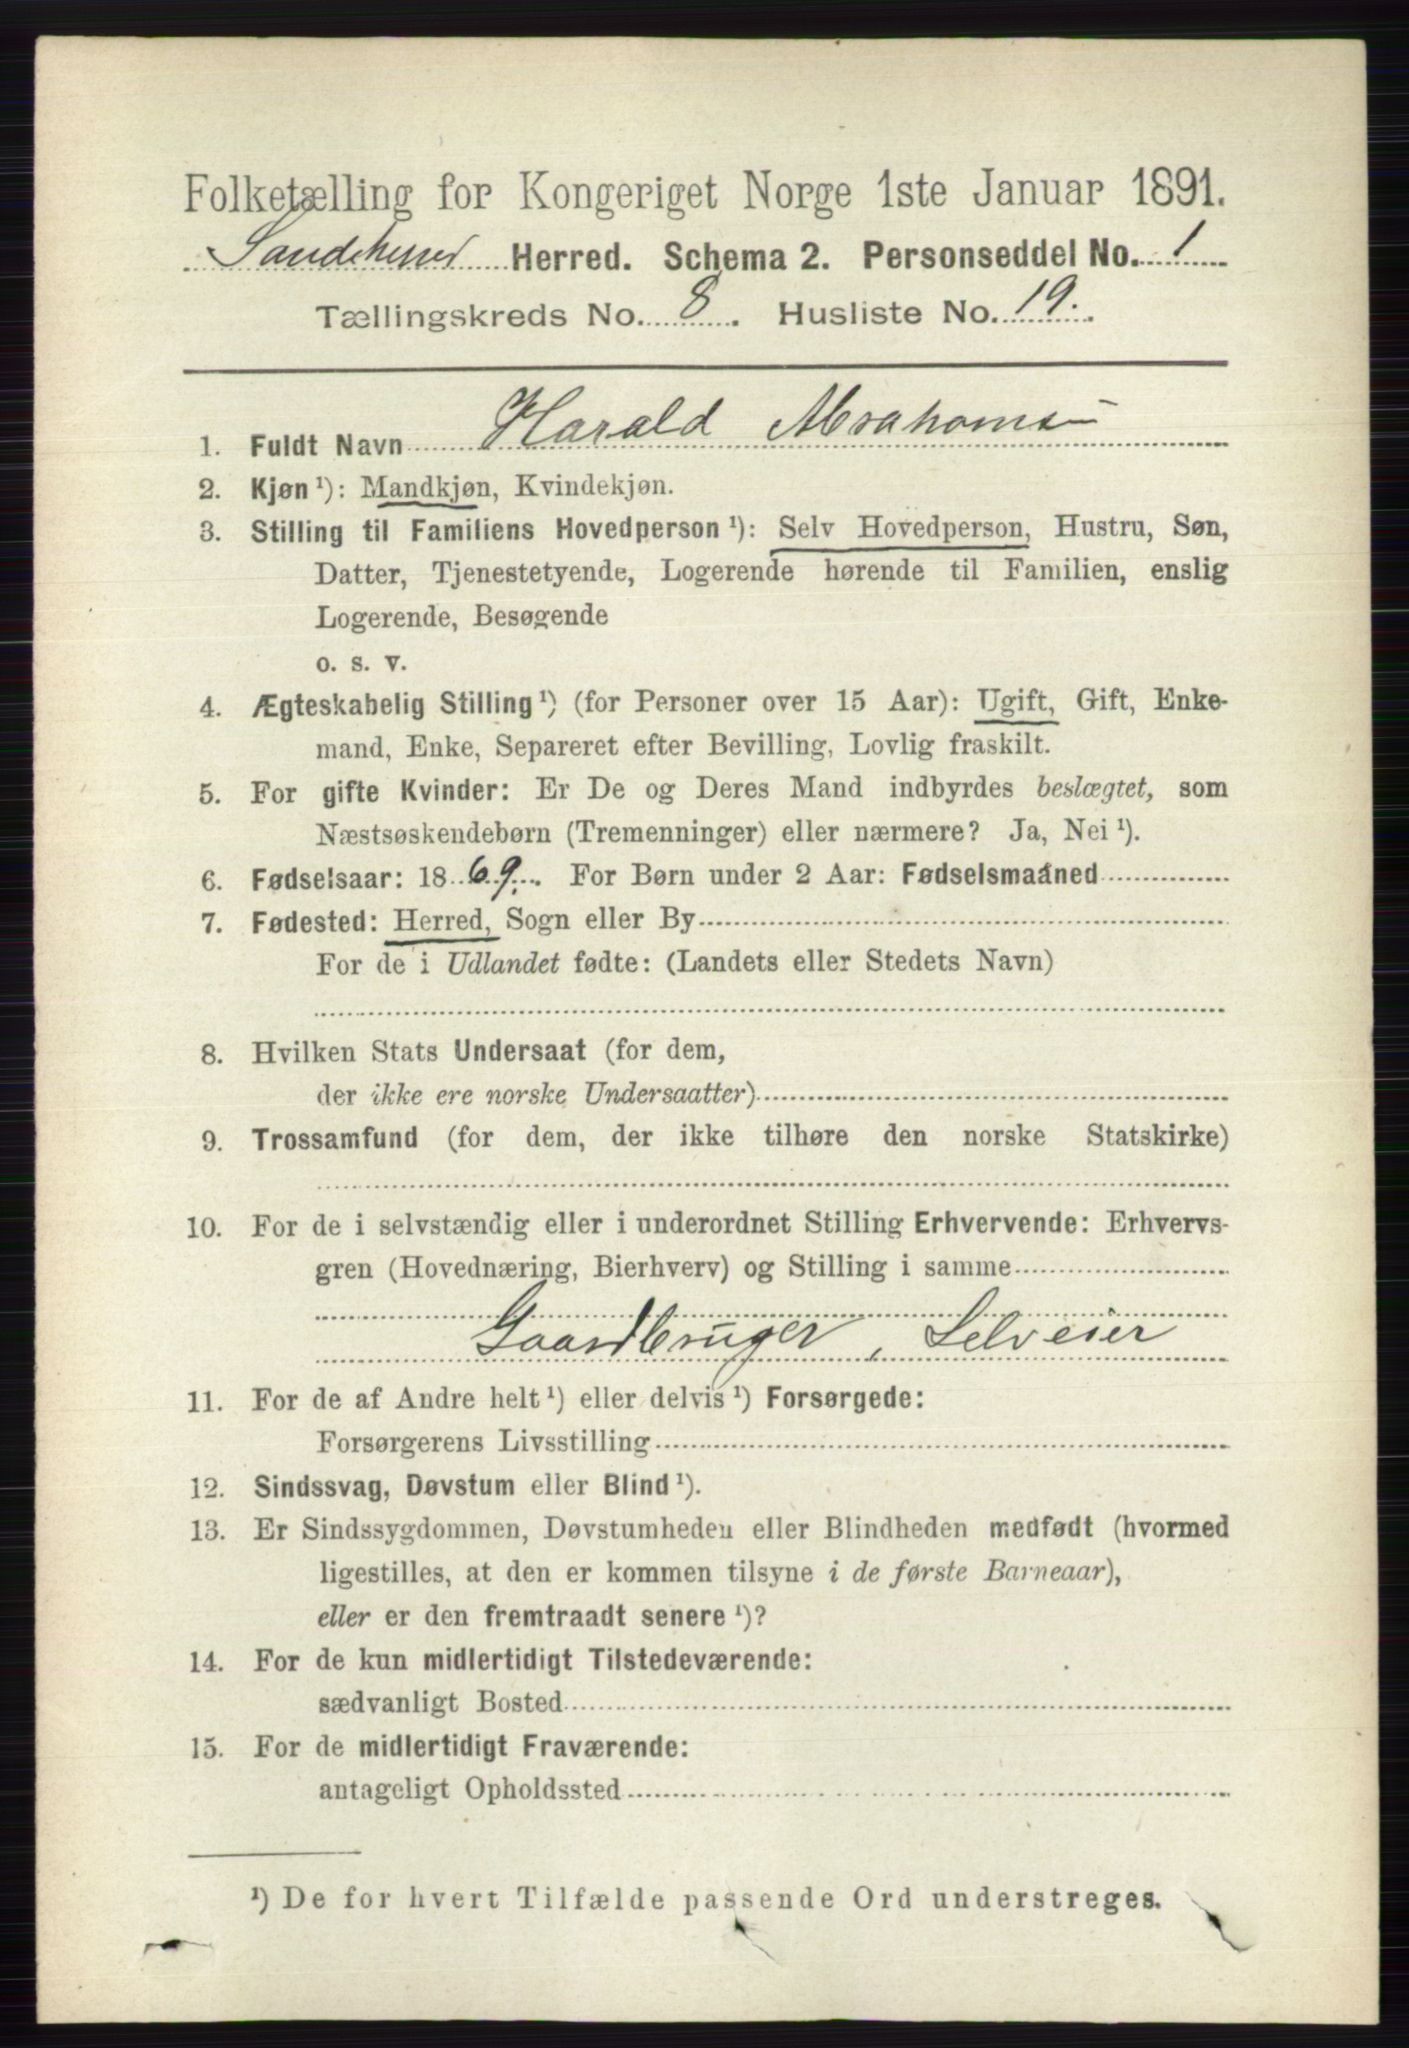 Folketælling for Kongeriget Norge 1ste Januar 1891.
Sandeherred Herred. Schema 2. Personseddel No. 1
Tællingskreds No. 8. Husliste No. 19.
1. Fuldt Navn Harald Abrahams
2. Kjøn ¹): Mandkjøn, Kvindekjøn.
3. Stilling til Familiens Hovedperson ¹): Selv Hovedperson, Hustru, Søn,
Datter, Tjenestetyende, Logerende hørende til Familien, enslig
Logerende, Besøgende
o. s. v.
4. Ægteskabelig Stilling ¹) (for Personer over 15 Aar): Ugift, Gift, Enke-
mand, Enke, Separeret efter Bevilling, Lovlig fraskilt.
5. For gifte Kvinder: Er De og Deres Mand indbyrdes beslægtet, som
Næstsøskendebørn (Tremenninger) eller nærmere? Ja, Nei ¹).
6. Fødselsaar: 1869. For Børn under 2 Aar: Fødselsmaaned
7. Fødested: Herred, Sogn eller By
For de i Udlandet fødte: (Landets eller Stedets Navn)
8. Hvilken Stats Undersaat (for dem,
der ikke ere norske Undersaatter)
9. Trossamfund (for dem, der ikke tilhøre den norske Statskirke)
10. For de i selvstændig eller i underordnet Stilling Erhvervende: Erhvervs-
gren (Hovednæring, Bierhverv) og Stilling i samme
Gaardbruger, Selveier
11. For de af Andre helt ¹) eller delvis ¹) Forsørgede:
Forsørgerens Livsstilling
12. Sindssvag, Døvstum eller Blind ¹).
13. Er Sindssygdommen, Døvstumheden eller Blindheden medfødt (hvormed
ligestilles, at den er kommen tilsyne i de første Barneaar),
eller er den fremtraadt senere ¹)?
14. For de kun midlertidigt Tilstedeværende:
sædvanligt Bosted
15. For de midlertidigt Fraværende:
antageligt Opholdssted
¹) De for hvert Tilfælde passende Ord understreges.